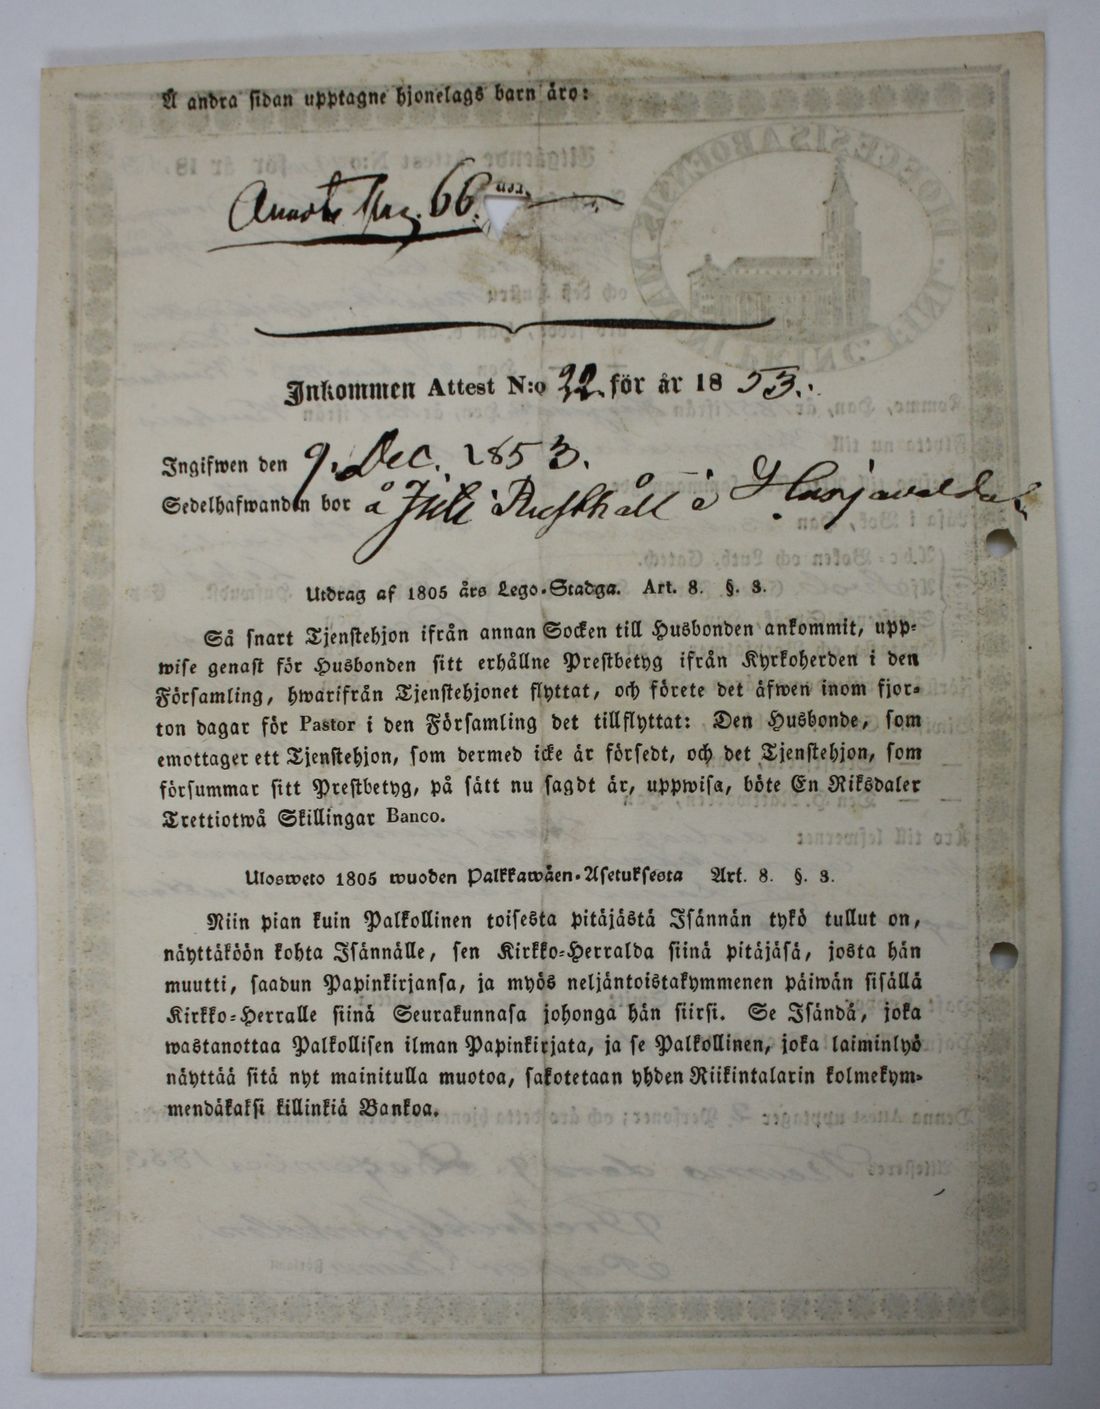 Å andra sidan upptagne hjonelags barn äro:
66.
Inkommen Attest N:o 22. för år 18 53.
Ingifwen den 9. Dec. 1853.
Sedelhafwanden bor å Juli Rusthåll i Harjavalda
Utdrag af 1805 års Lego-Stadga. Art. 8. §. 3.
Så snart Tjenstehjon ifrån annan Socken till Husbonden ankommit, upp-
wise genast för Husbonden sitt erhållne Prestbetyg ifrån Kyrkoherden i den
Församling, hwarifrån Tjenstehjonet flyttat, och förete det äfwen inom fjor-
ton dagar för Pastor i den Församling det tillflyttat: Den Husbonde, som
emottager ett Tjenstehjon, som dermed icke är försedt, och det Tjenstehjon, som
försummar sitt Prestbetyg, på sätt nu sagdt är, uppwisa, böte En Riksdaler
Trettiotwå Skillingar Banco.
Ulosweto 1805 wuoden Palkkawäen-Asetuksesta Art. 8. §. 3.
Niin pian kuin Palkollinen toisesta pitäjästä Isännän tykö tullut on,
näyttäköön kohta Isännälle, sen Kirkko-Herralda siinä pitäjäsä, josta hän
muutti, saadun Papinkirjansa, ja myös neljäntoistakymmenen päiwän sisällä
Kirkko-Herralle siinä Seurakunnasa johonga hän siirsi. Se Isändä, joka
wastanottaa Palkollisen ilman Papinkirjata, ja se Palkollinen, joka laiminlyö
näyttää sitä nyt mainitulla muotoa, sakotetaan yhden Riikintalarin kolmekym-
mendäkaksi killinkiä Bankoa.